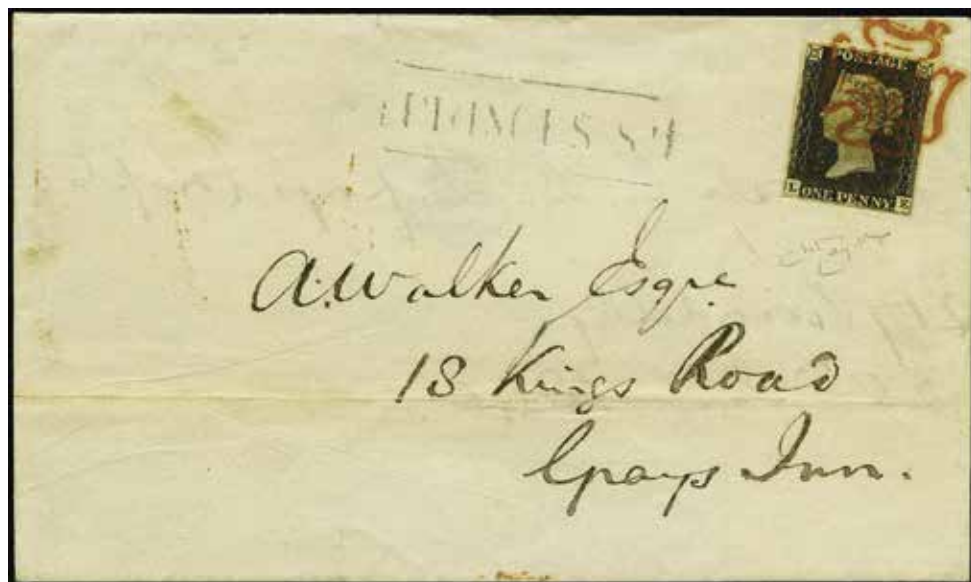 POSTAGE
PRINCES ST
L ONE PENNY E
A. Walker Esqre.
18 Kings Road
Grays Inn.